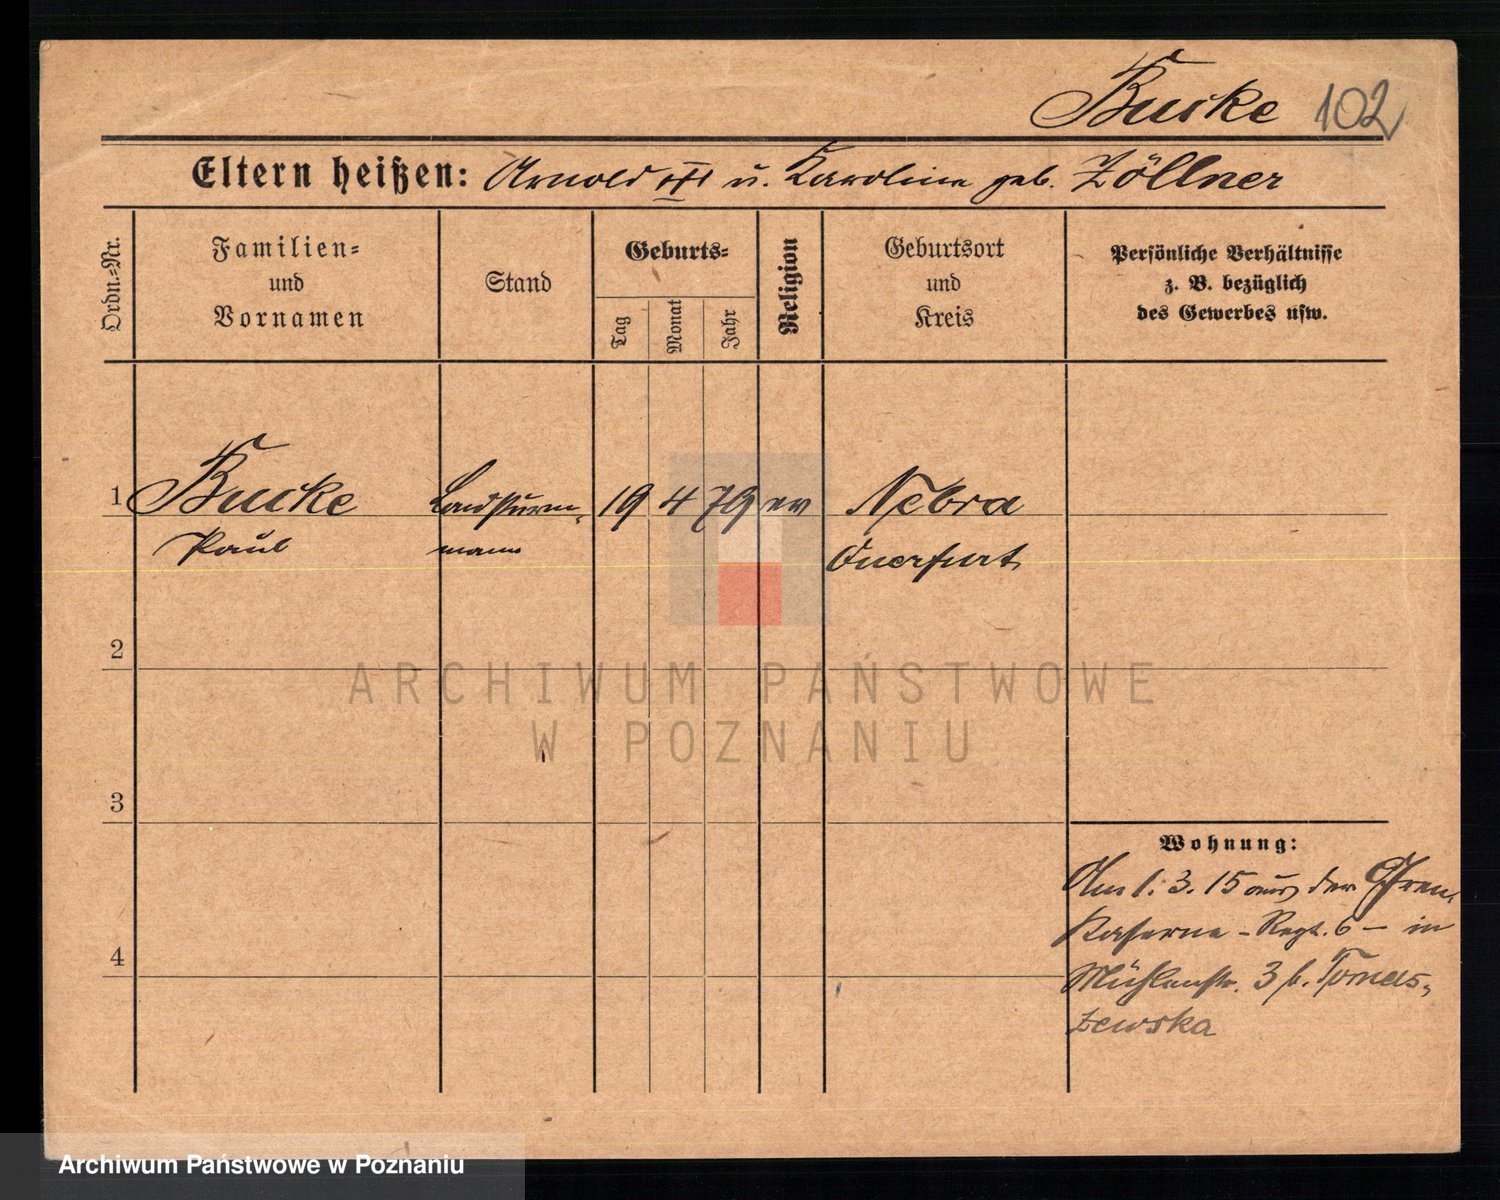 Bucke 102
Eltern heißen: Arnold u. Karoline geb. Zöllner
Ordn.=Nr.
Familien=
und
Vornamen
Stand
Geburts=
Tag
Monat
Jahr
Religion
Geburtsort
und
Kreis
Persönliche Verhältnisse
z. B. bezüglich
des Gewerbes usw.
1 Bucke Landsturm- 19 4 79 ev Nebra
Paul mann Querfurt
2
3
4
Wohnung:
Am 1. 3. 15 aus der Gren.
Kaserne - Regt. 6 - in
Mühlenstr. 3 b. Tomas-
zewska
ARCHIWUM PAŃSTWOWE
W POZNANIU
Archiwum Państwowe w Poznaniu